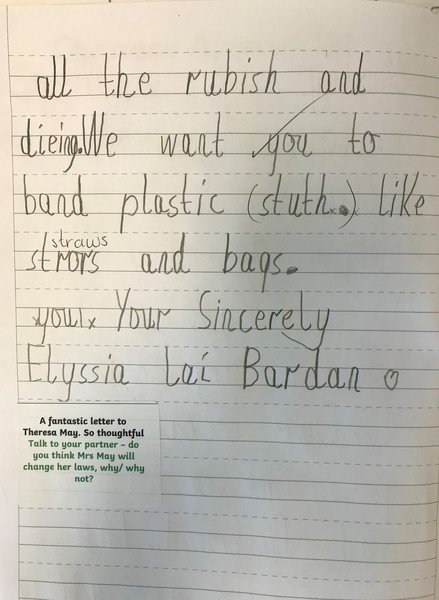 all the rubish and
dieing.We want you to
band plastic (stuth.) like
straws
strors and bags.
your Your Sincerely
Elyssia Lai Bardan
A fantastic letter to
Theresa May. So thoughtful
Talk to your partner – do
you think Mrs May will
change her laws, why/ why
not?